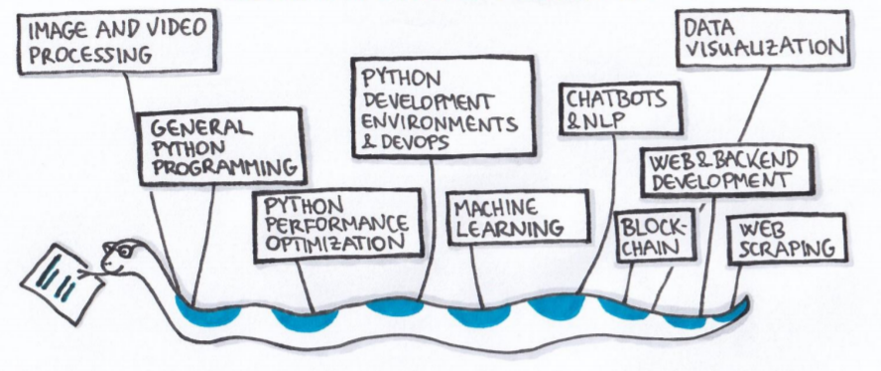 IMAGE AND VIDEO
PROCESSING
GENERAL
PYTHON
PROGRAMMING
PYTHON
PERFORMANCE
OPTIMIZATION
PYTHON
DEVELOPMENT
ENVIRONMENTS
& DEVOPS
MACHINE
LEARNING
CHATBOTS
& NLP
DATA
VISUALIZATION
WEB & BACKEND
DEVELOPMENT
BLOCK-
CHAIN
WEB
SCRAPING